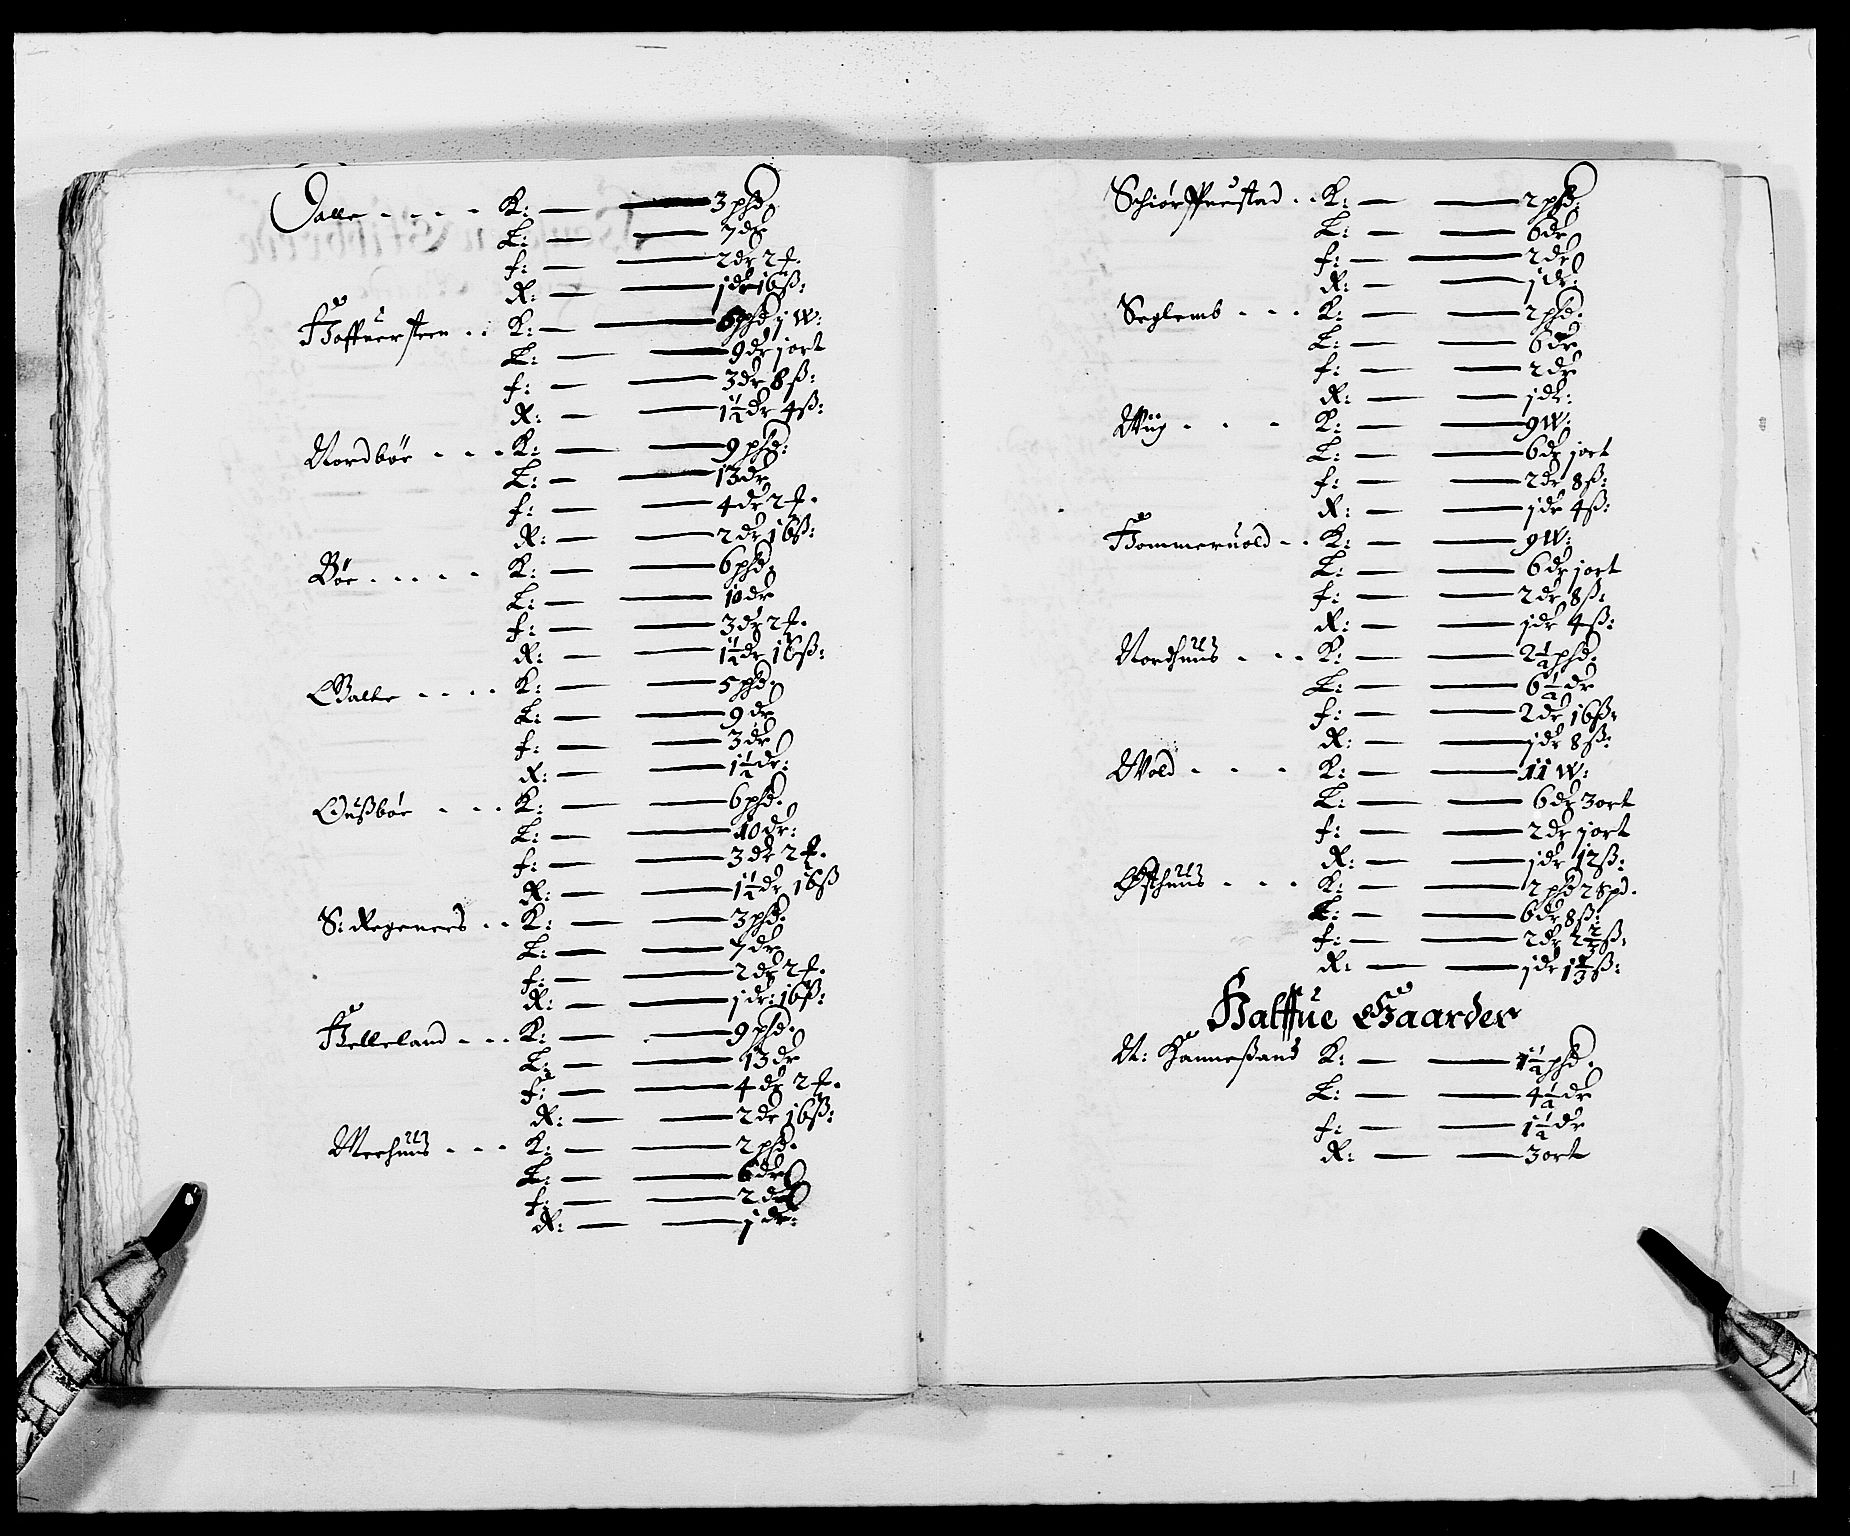 Dalle - - - - K: — 3 phd.
L: — 7 dr
f: — 2 dr 2 f.
R: — j dr 16 ß:
Hoffuersteen . . K: — phd j W:
L: — 9 dr j ort
f: — 3 dr 8 ß:
R: — 1½ dr 4 ß:
Nordbøe - - - K: — 9 phd:
L: — 13 dr
f: — 4 dr 2 f.
R: — 2 dr 16 ß:
Bøe . . . . . K: — 6 phd.
L: — 10 dr
f: — 3 dr 2 f.
R: — 1½ dr 16 ß:
Galte - - - - K: — 5 phd.
L: — 9 dr
f: — 3 dr
R: — 1½ dr:
Dußbøe - - - K: — 6 phd.
L: — 10 dr:
f: — 3 dr 2 f.
R: — 1½ dr 16 ß
S: Regeners . . K: — 3 phd.
L: — 7 dr
f: — 2 dr 2 f.
R: — j dr: 16 ß:
Helleland - - - K: — 9 phd.
L: — 13 dr
f: — 4 dr 2 f.
R: — 2 dr 16 ß:
Meehuus - - - K: — 2 phd.
L: — 6 dr
f: — 2 dr
R: — j dr:
Schiørpestad . . K: — 2 phd:
L: — 6 dr
f: — 2 dr
R: — j dr:
Seglemb - - - K: — 2 phd.
L: — 6 dr
f: — 2 dr
R: — j dr:
Wiig - - - K: — 9 W:
L: — 6 dr j ort
f: — 2 dr 8 ß:
R: — j dr 4 ß:
Hommeruold - . K: — 9 W:
L: — 6 dr j ort
f: — 2 dr 8 ß:
R: — j dr 4 ß:
Nordhuus - - - K: — 2½ phd.
L: — 6½ dr
f: — 2 dr 16 ß:
R: — j dr 8 ß:
Wold - - - K: — 11 W:
L: — 6 dr 3 ort
f: — 2 dr j ort
R: — j dr 12 ß:
Østhuus - - - K: — 2 phd 2 8 pd.
L: — 6 dr 8 ß:
f: — 2 dr 2⅔ ß:
R: — j dr 1⅓ ß:
Halffue Gaarder
N: Hanneßand K: — 1½ phd.
L: — 4½ dr
f: — 1½ dr
R: — 3 ort